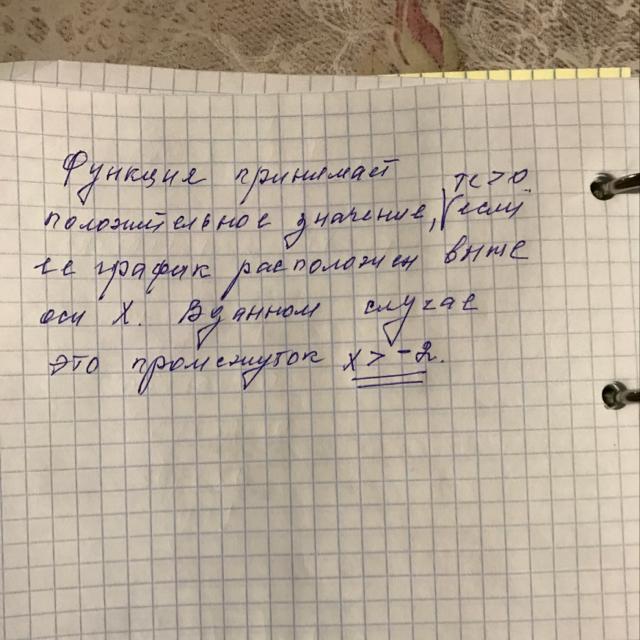 Функция принимает
те >0
положительное значение, если
ее график расположен выше
оси X. В данном случае
это промежуток x > -2.